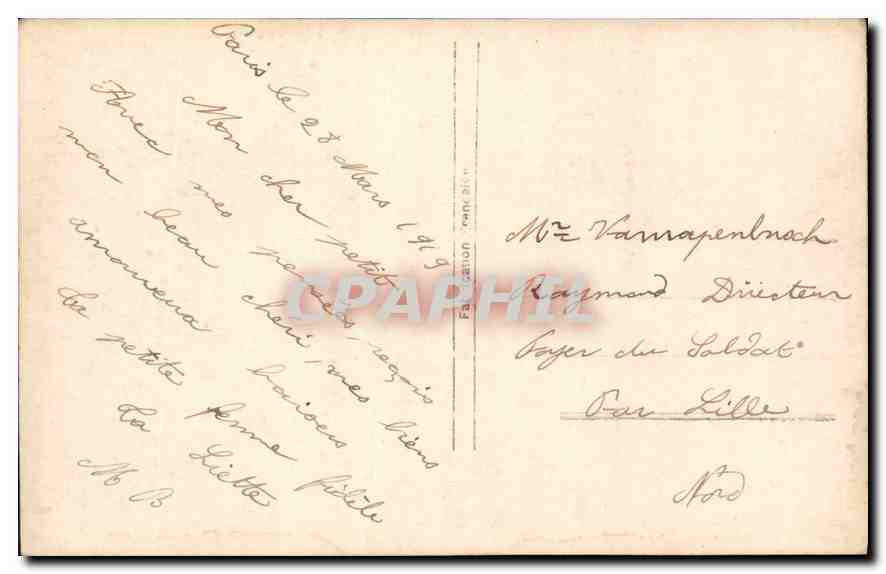 Paris le 28 Mars 1919
Mon cher petit
Avec mes pensées, reçois
mon beau chéri, mes biens
amoureux baisers
La petite femme fidèle
La Liette
M B
Fabrication Française
Mr
Raymond Directeur
Foyer du Soldat
Par Lille
Nord
CPAPHIL